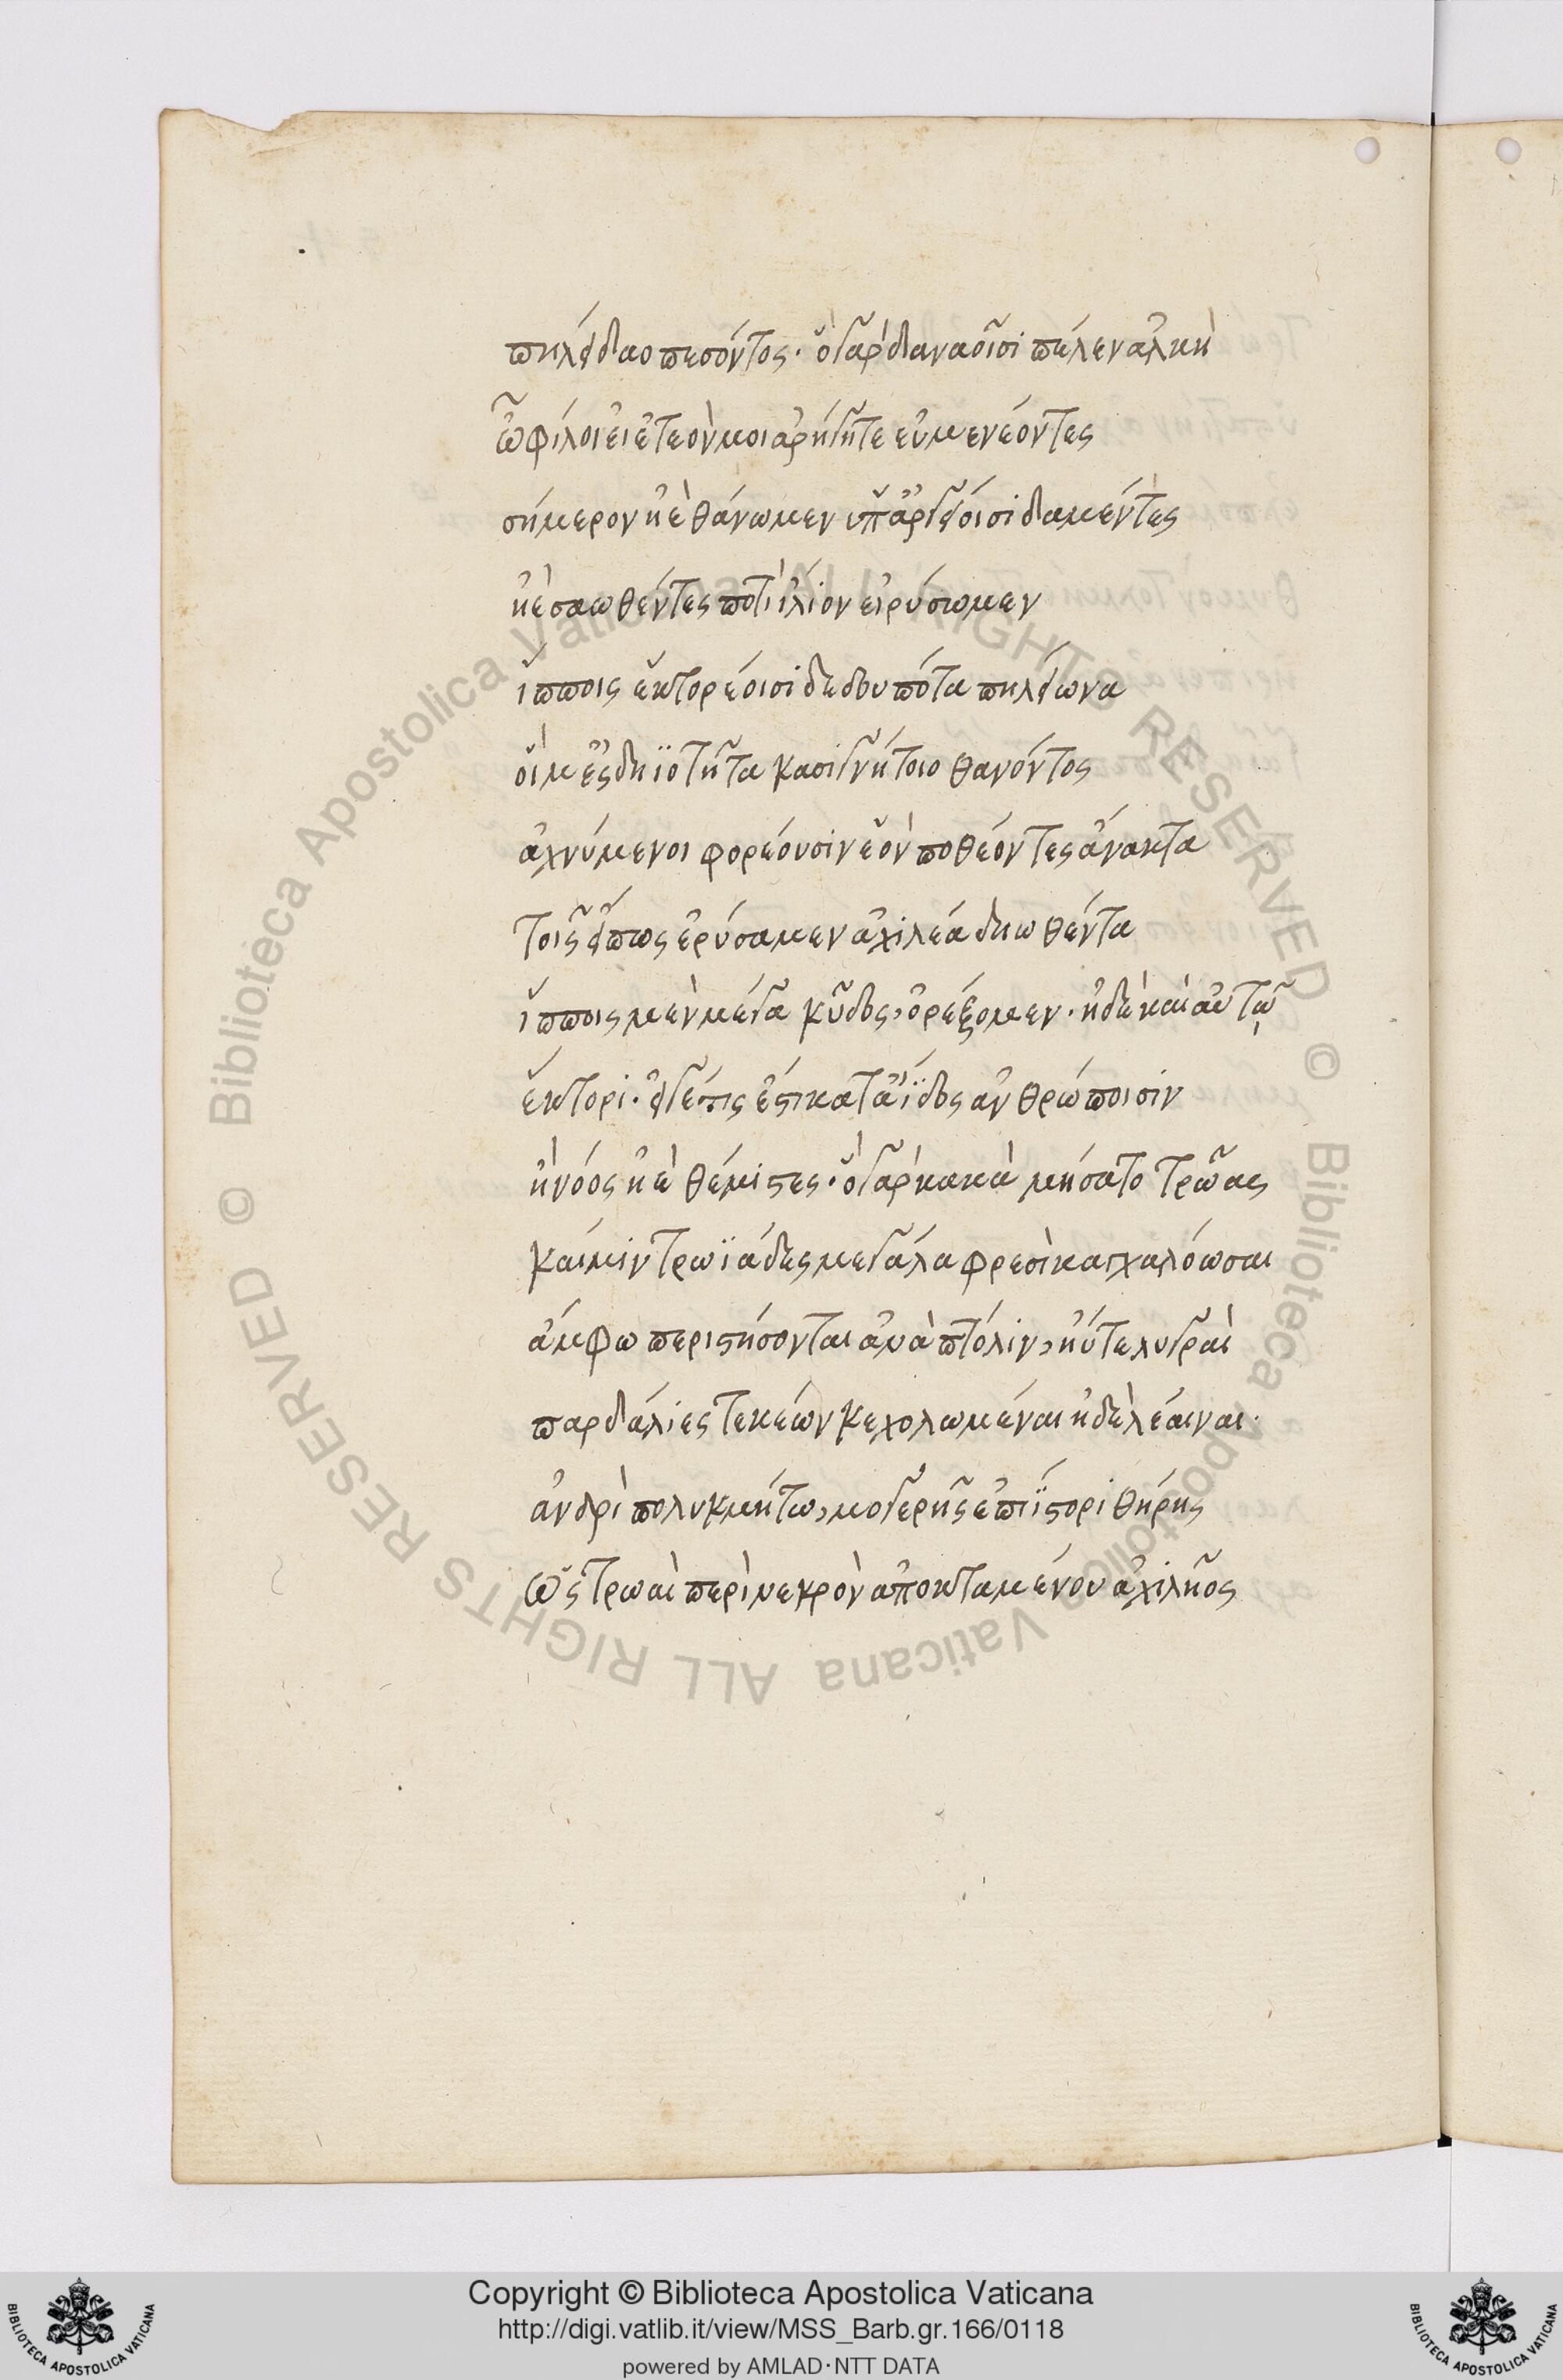 πηλείδαο πεσόντος· οὐ γὰρ δαναοῖσι πέλεν ἀλκή
ὦ φίλοι εἰ ἐτεόν μοι ἀρήγητε εὐμενέοντες
σήμερον ἠὲ θάνωμεν ὑπ' ἀργείοισι δαμέντες
ἠὲ σαωθέντες ποτὶ ἴλιον εἰρύσωμεν
ἵπποις ἑκτορέοισι δεδουπότα πηλείωνα
οἵ μ' ἐς δηϊοτῆτα κασιγνήτοιο θανόντος
ἀχνύμενοι φορέουσιν ἑὸν ποθέοντες ἄνακτα
τοῖς εἴ πως ἐρύσαμεν ἀχιλέα δηωθέντα
ἵπποις μὲν μέγα κῦδος, ὀρέξομεν· ἠδὲ καὶ αὐτῷ
ἕκτορι· εἴ γέ τίς ἐστι κατ' ἄϊδος ἀνθρώποισιν
ἢ νόος ἠὲ θέμιστες· ὁ γὰρ κακὰ μήσατο τρῶας
καί μιν τρωϊάδες μεγάλα φρεσὶ καγχαλόωσαι
ἄμφω περιστήσονται ἀνὰ πτόλιν, ἠΰτε λυγραὶ
παρδάλιες τεκέων κεχολωμέναι ἠδὲ λέαιναι·
ἀνδρὶ πολυκμήτω, μογερῆς ἐπιΐστορι θήρης
ὣς τρωαὶ περὶ νεκρὸν ἀποκταμένου ἀχιλῆος
Copyright © Biblioteca Apostolica Vaticana
http://digi.vatlib.it/view/MSS_Barb.gr.166/0118
powered by AMLAD·NTT DATA
BIBLIOTECA APOSTOLICA VATICANA
BIBLIOTECA APOSTOLICA VATICANA
© Biblioteca Apostolica Vaticana ALL RIGHTS RESERVED © Biblioteca Apostolica Vaticana ALL RIGHTS RESERVED